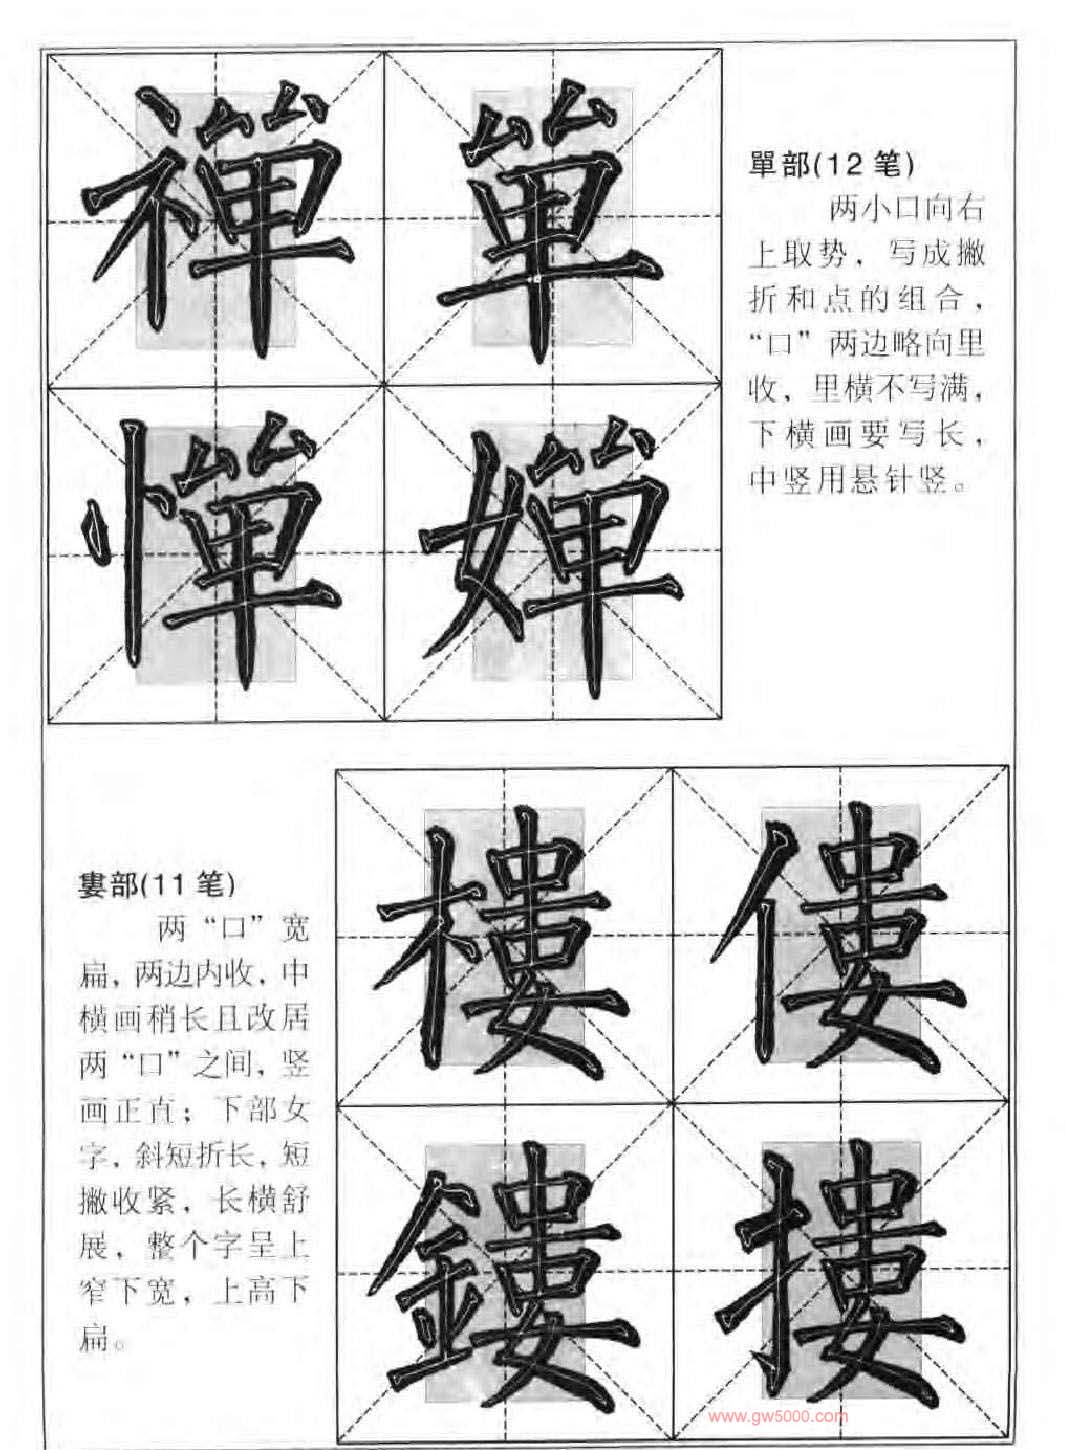 禪 單
單部(12笔)
两小口向右
上取势，写成撇
折和点的组合，
“口”两边略向里
收，里横不写满，
下横画要写长，
中竖用悬针竖。
憚 嬋
樓 僂
婁部(11笔)
两“口”宽
扁，两边内收，中
横画稍长且改居
两“口”之间，竖
画正直；下部女
字，斜短折长，短
撇收紧，长横舒
展，整个字呈上
窄下宽，上高下
扁。
鏤 摟
www.gw5000.com